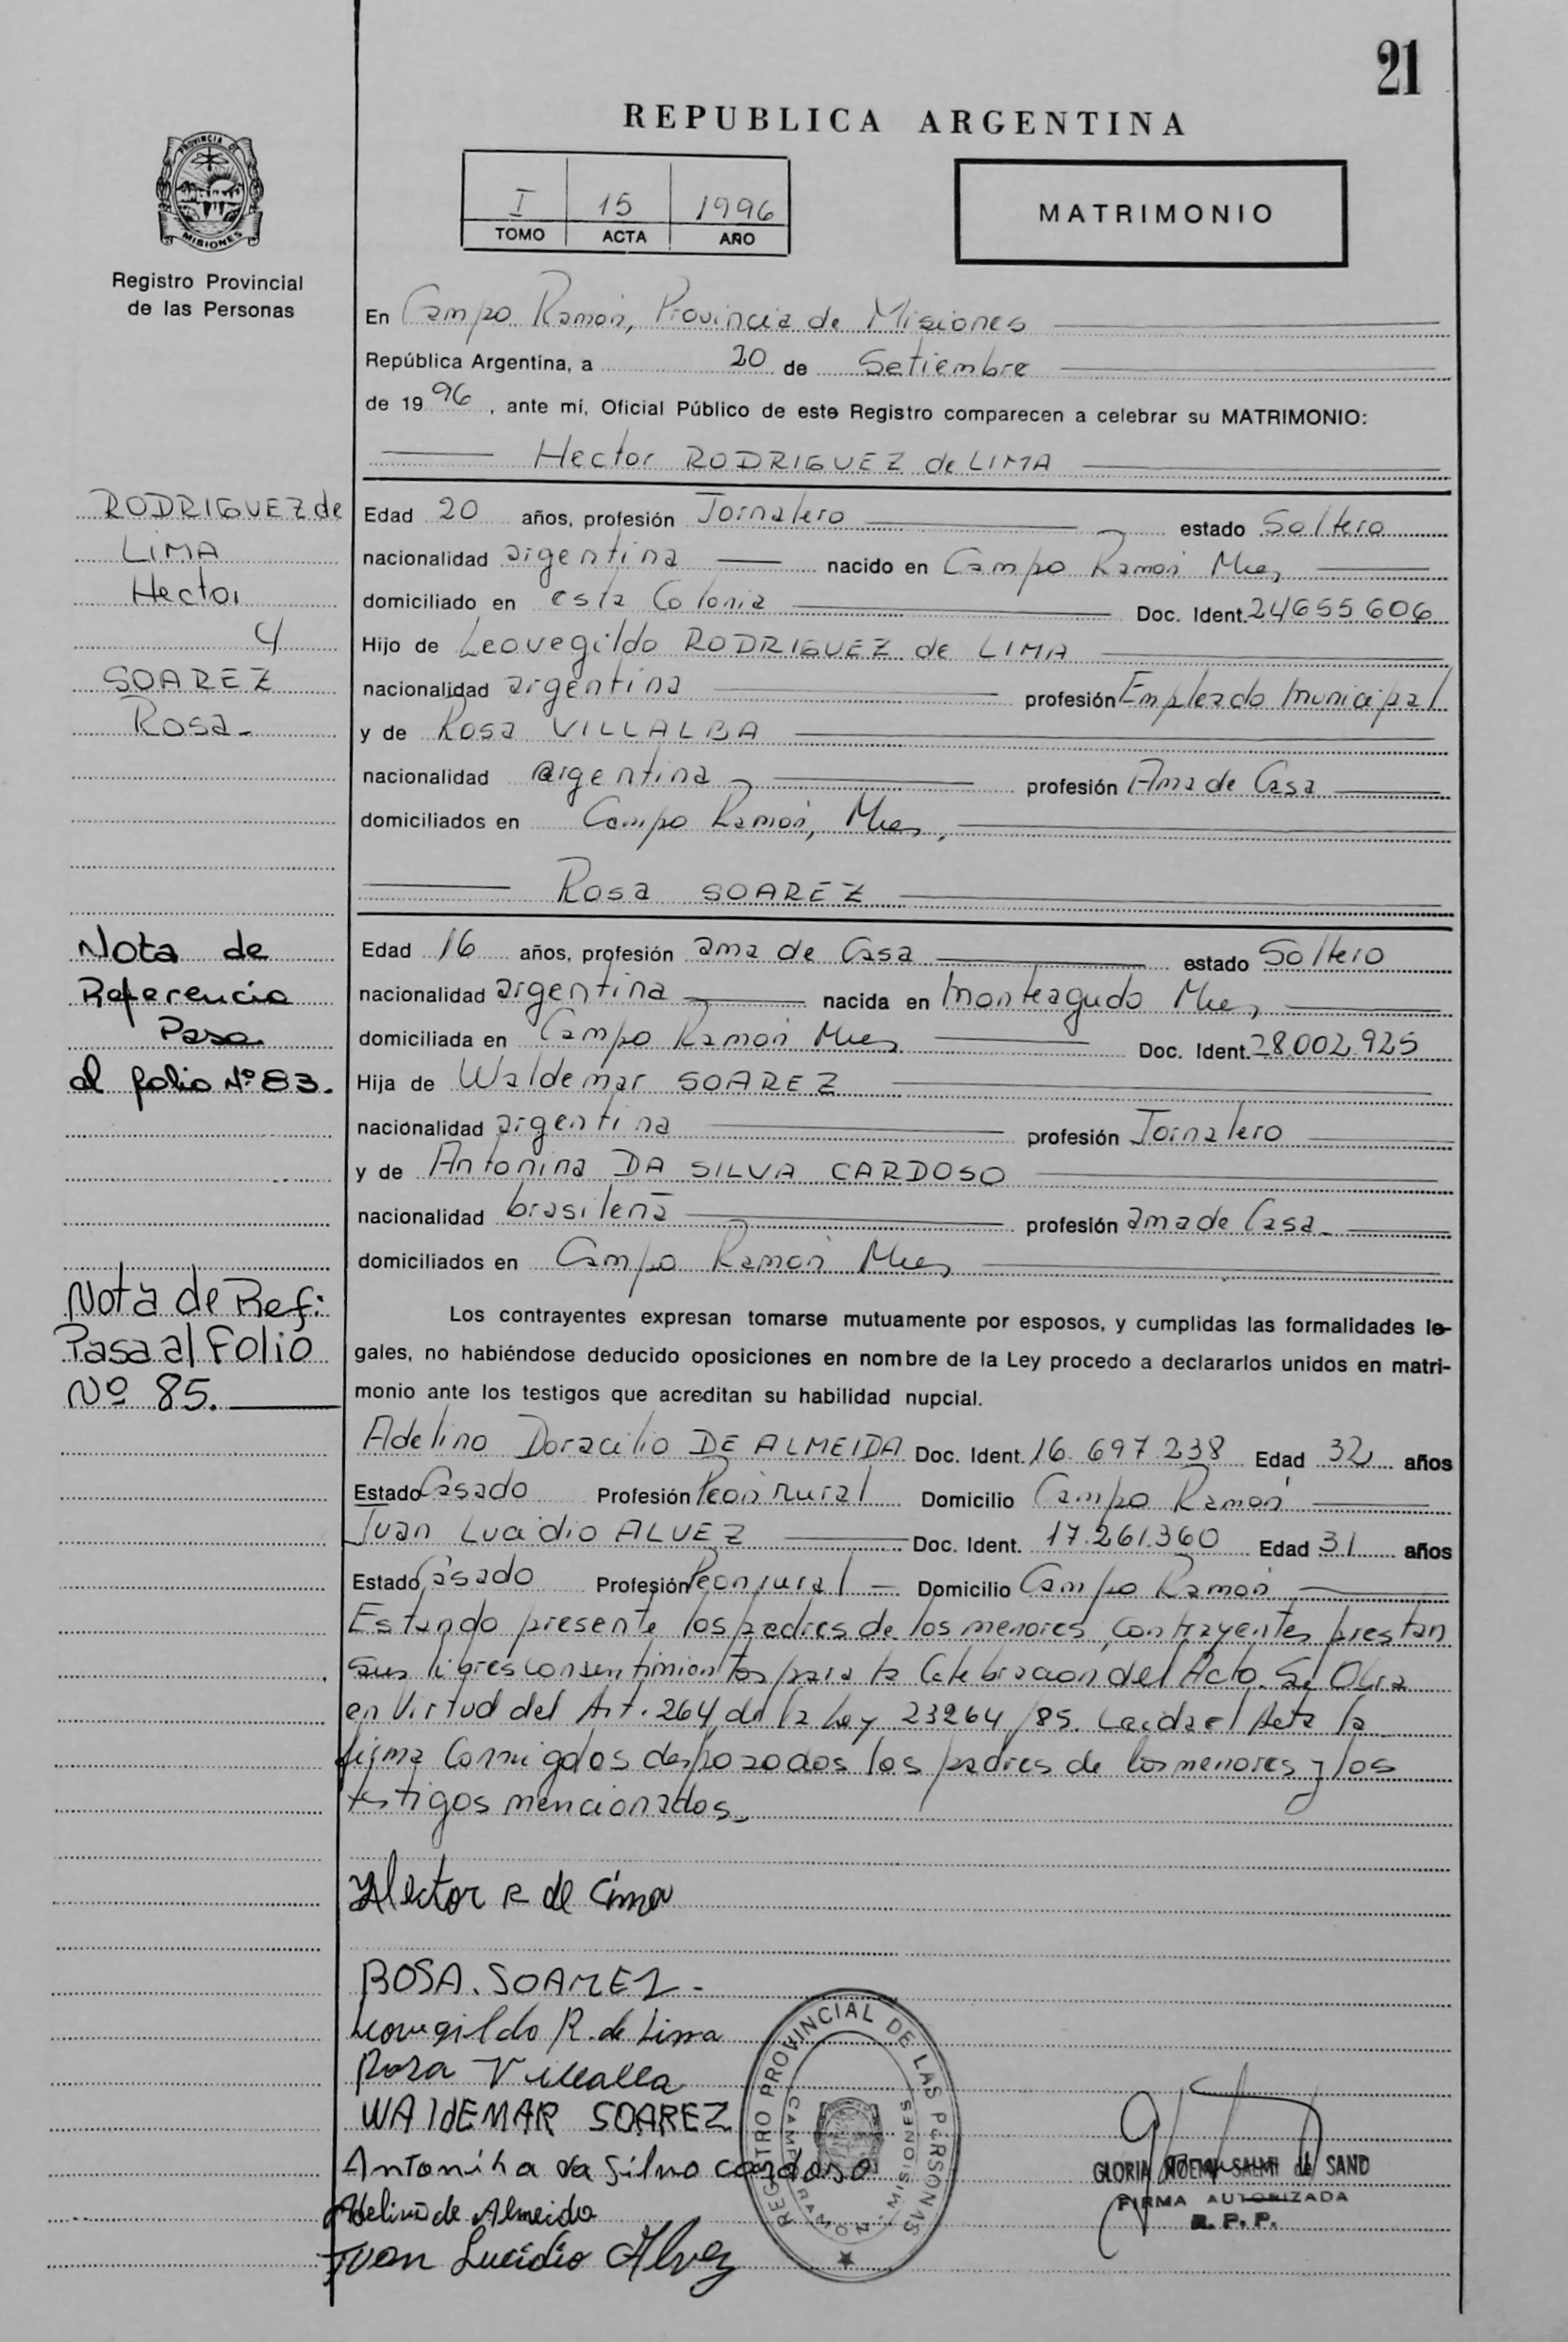 21
REPUBLICA ARGENTINA
I 15 1996
TOMO ACTA AÑO
MATRIMONIO
PROVINCIA DE
MISIONES
Registro Provincial
de las Personas
En Campo Ramón, Provincia de Misiones
República Argentina, a 20 de Setiembre
de 1996, ante mí, Oficial Público de este Registro comparecen a celebrar su MATRIMONIO:
Hector RODRIGUEZ de LIMA
RODRIGUEZ de
LIMA
Hector
y
SOAREZ
Rosa-
Edad 20 años, profesión Jornalero estado Soltero
nacionalidad argentina nacido en Campo Ramón Mnes,
domiciliado en esta Colonia Doc. Ident. 24655606
Hijo de Leovegildo RODRIGUEZ de LIMA
nacionalidad argentina profesión Empleado Municipal
y de Rosa VILLALBA
nacionalidad argentina profesión Ama de Casa
domiciliados en Campo Ramón, Mnes,
Rosa SOAREZ
Nota de
Referencia
Pasa
al folio Nº 83.
Edad 16 años, profesión ama de Casa estado Soltero
nacionalidad argentina nacida en Monteagudo Mnes,
domiciliada en Campo Ramón Mnes Doc. Ident. 28.002.925
Hija de Waldemar SOAREZ
nacionalidad argentina profesión Jornalero
y de Antonina DA SILVA CARDOSO
nacionalidad brasileña profesión ama de Casa-
domiciliados en Campo Ramón Mnes
Nota de Ref:
Pasa al Folio
Nº 85.
Los contrayentes expresan tomarse mutuamente por esposos, y cumplidas las formalidades le-
gales, no habiéndose deducido oposiciones en nombre de la Ley procedo a declararlos unidos en matri-
monio ante los testigos que acreditan su habilidad nupcial.
Adelino Doracilio DE ALMEIDA Doc. Ident. 16.697.238 Edad 32 años
Estado Casado Profesión Peon Rural Domicilio Campo Ramón
Juan Lucidio ALVEZ Doc. Ident. 17.261.360 Edad 31 años
Estado Casado Profesión Peon rural Domicilio Campo Ramon
Estando presente los padres de los menores contrayentes prestan
sus libres consentimientos para la Celebracion del Acto. Se Obra
en Virtud del Art. 264 de la Ley 23264/85. Leida el Acta la
firma Conmigo los desposados los padres de los menores y los
testigos mencionados-
Hector R de Lima
ROSA. SOAREZ-
Leovegildo R. de Lima
Rosa Villalba
WAldEMAR SOAREZ
Antonina da Silva cardoso
Adelino de Almeida
Juan Lucidio Alvez
REGISTRO PROVINCIAL DE LAS PERSONAS
CAMPO RAMON - MISIONES
GLORIA NOEMI SALMI de SAND
FIRMA AUTORIZADA
R. P. P.